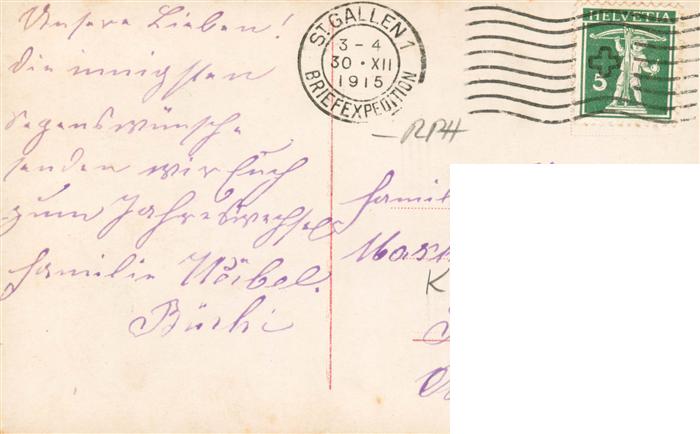 Unsere Lieben!
die innigsten
Segenswünsche
senden wir Euch
zum Jahreswechsel
Familie Weibel.
Bürki
ST. GALLEN 1
3-4
30 · XII
1915
BRIEFEXPEDITION
HELVETIA
5
RPH
Famil
K